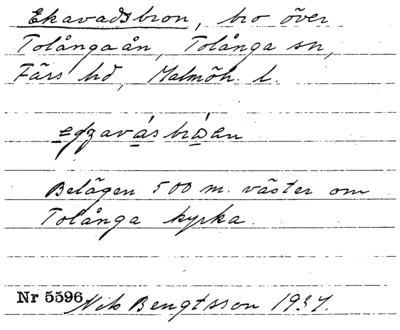 Ekavadsbron, bro över
Tolångaån, Tolånga sn,
Färs hd, Malmöh. l.
Belägen 500 m. väster om
Tolånga kyrka.
Nr 5596. Nils Bengtsson